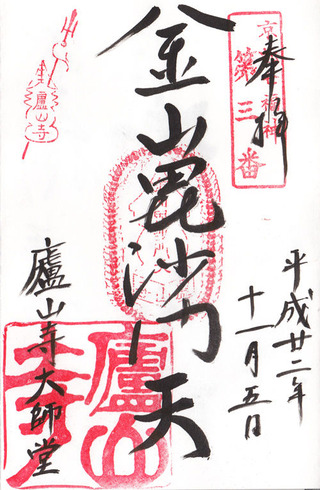 奉拝
京
福神
第三番
平成廿二年
十一月五日
金山毘沙門天
廬山寺大師堂
廬山寺
廬山寺